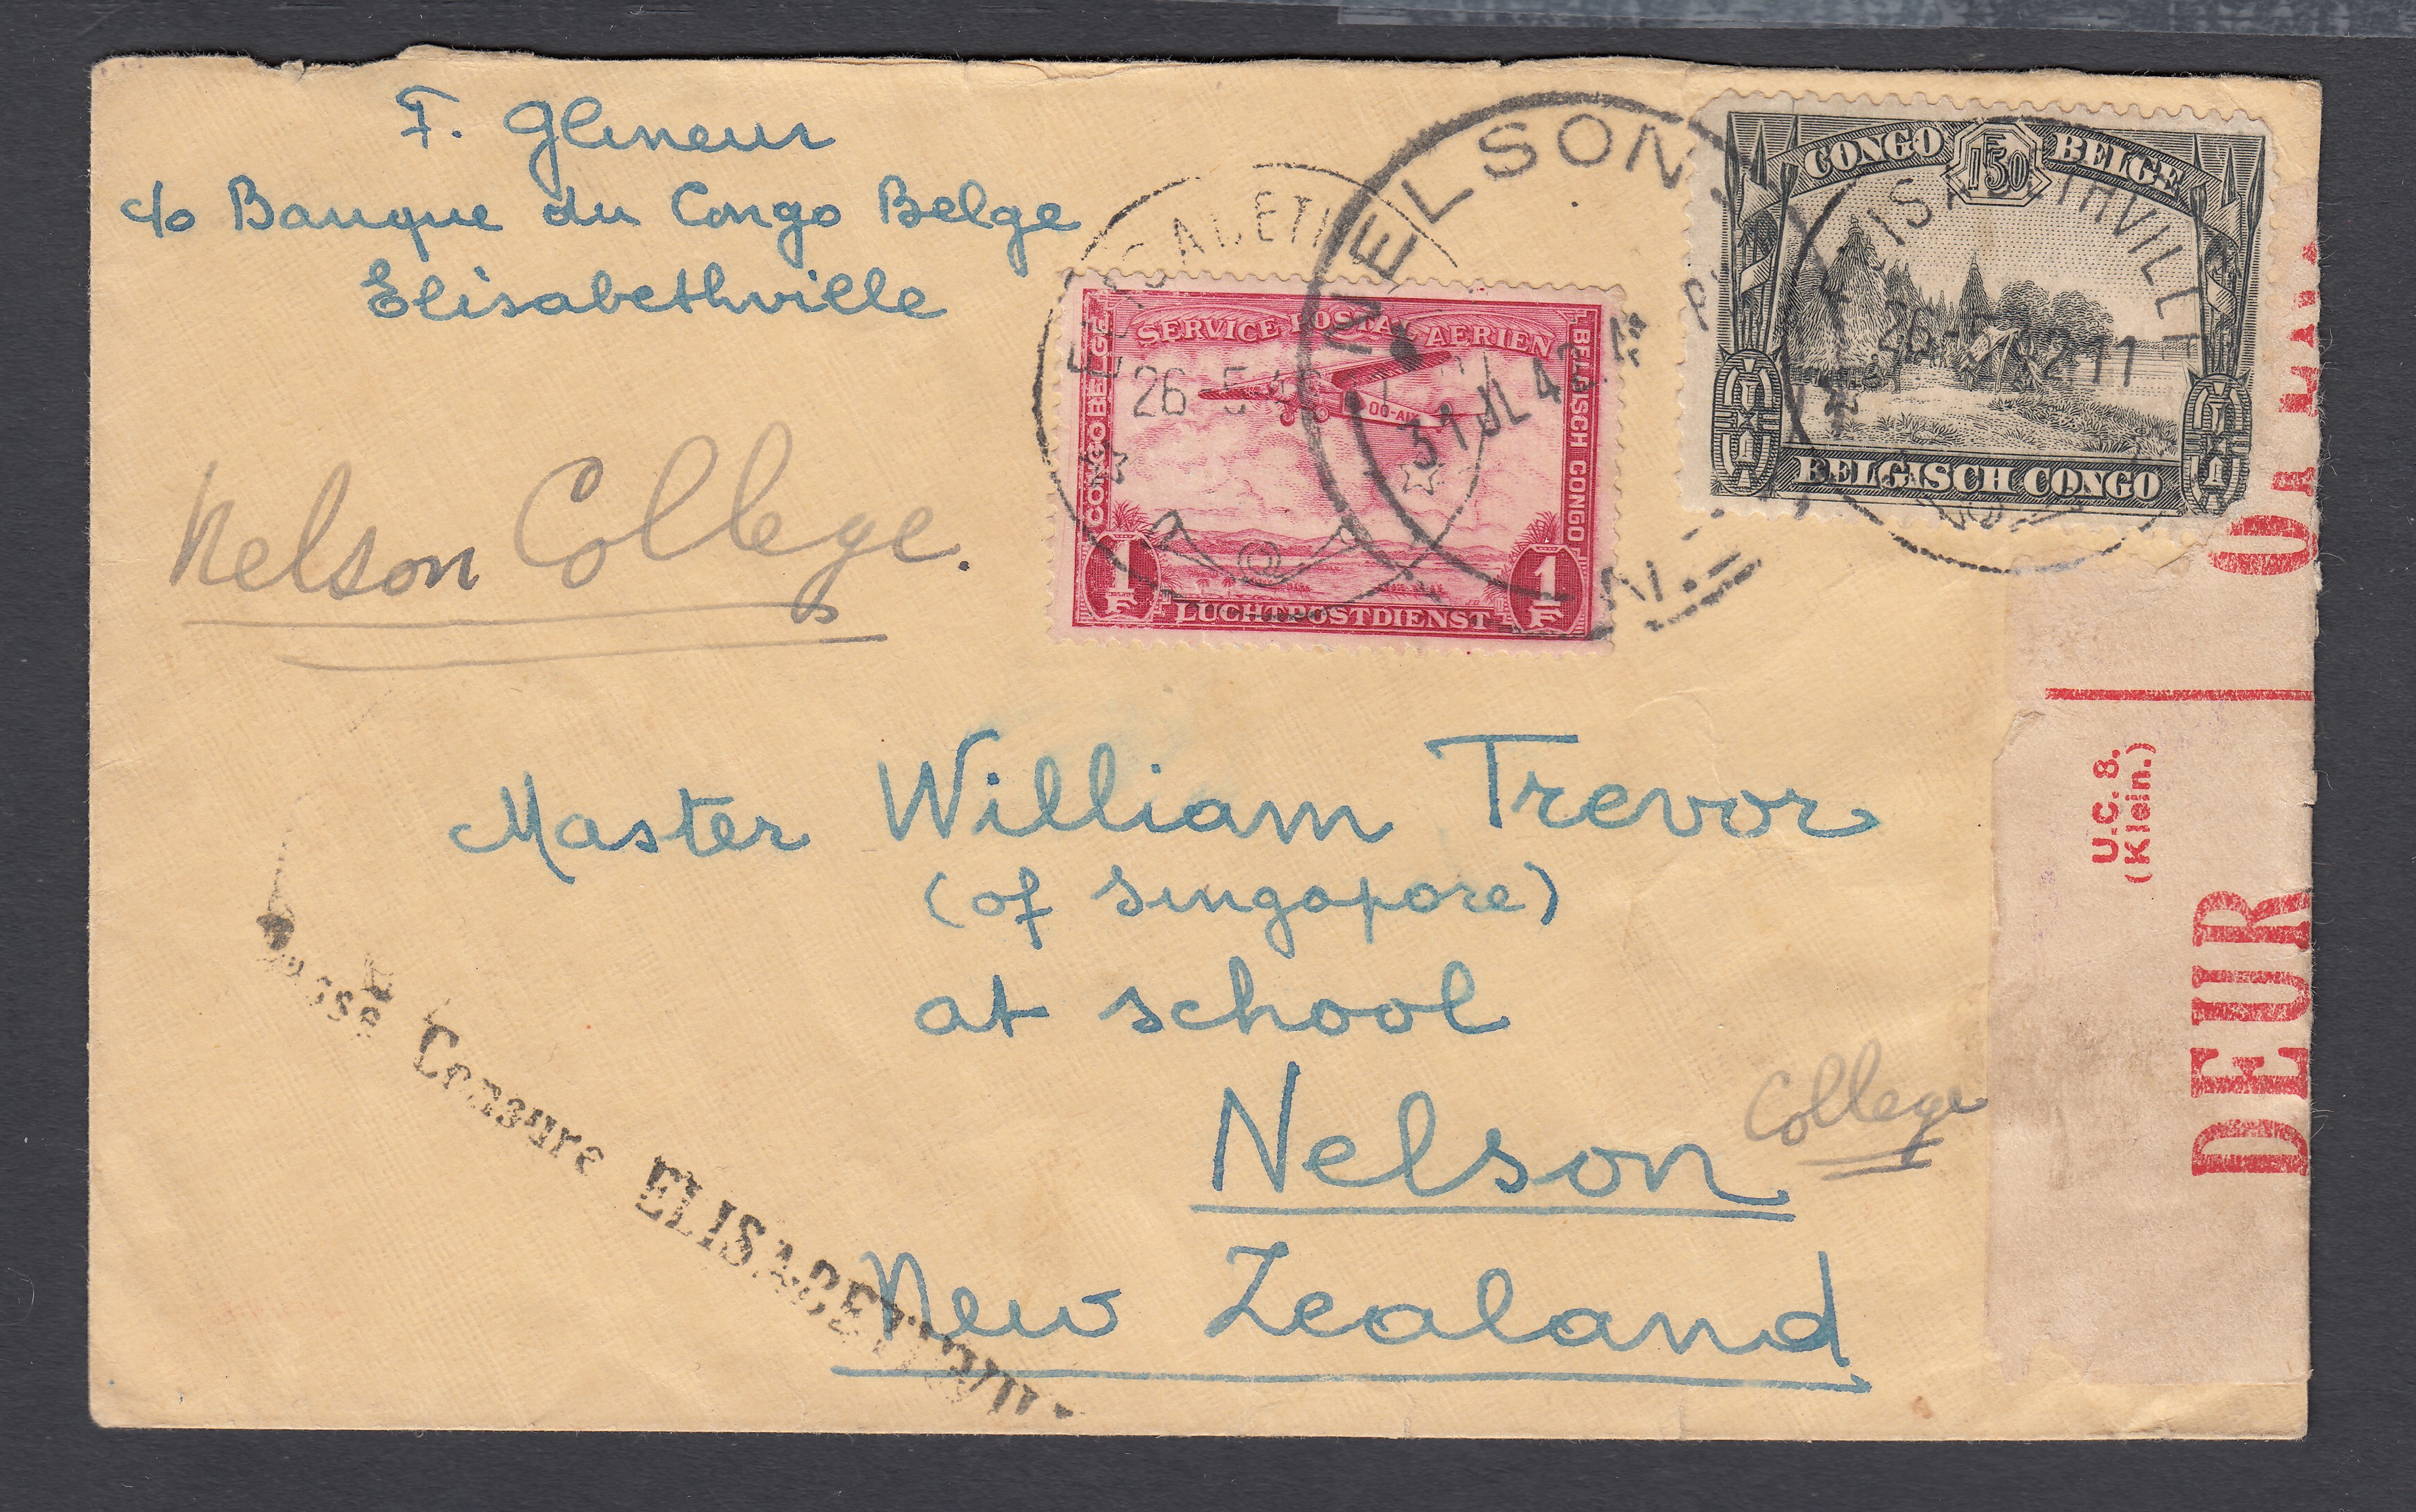 F. Glineur
c/o Banque du Congo Belge
Elisabethville
NELSON
31 JL 42
N.Z.
CONGO BELGE
1F50
ELISABETHVILLE
26-5 42-11
BELGISCH CONGO
SERVICE POSTAL AERIEN
CONGO BELGE
BELGISCH CONGO
OO-AI
26-5
1 F
1 F
LUCHTPOSTDIENST
Nelson College.
Master William Trevor
(of Singapore)
at school
Nelson
College
New Zealand
Censure ELISABETHVILLE
U.C. 8.
(Klein.)
DEUR